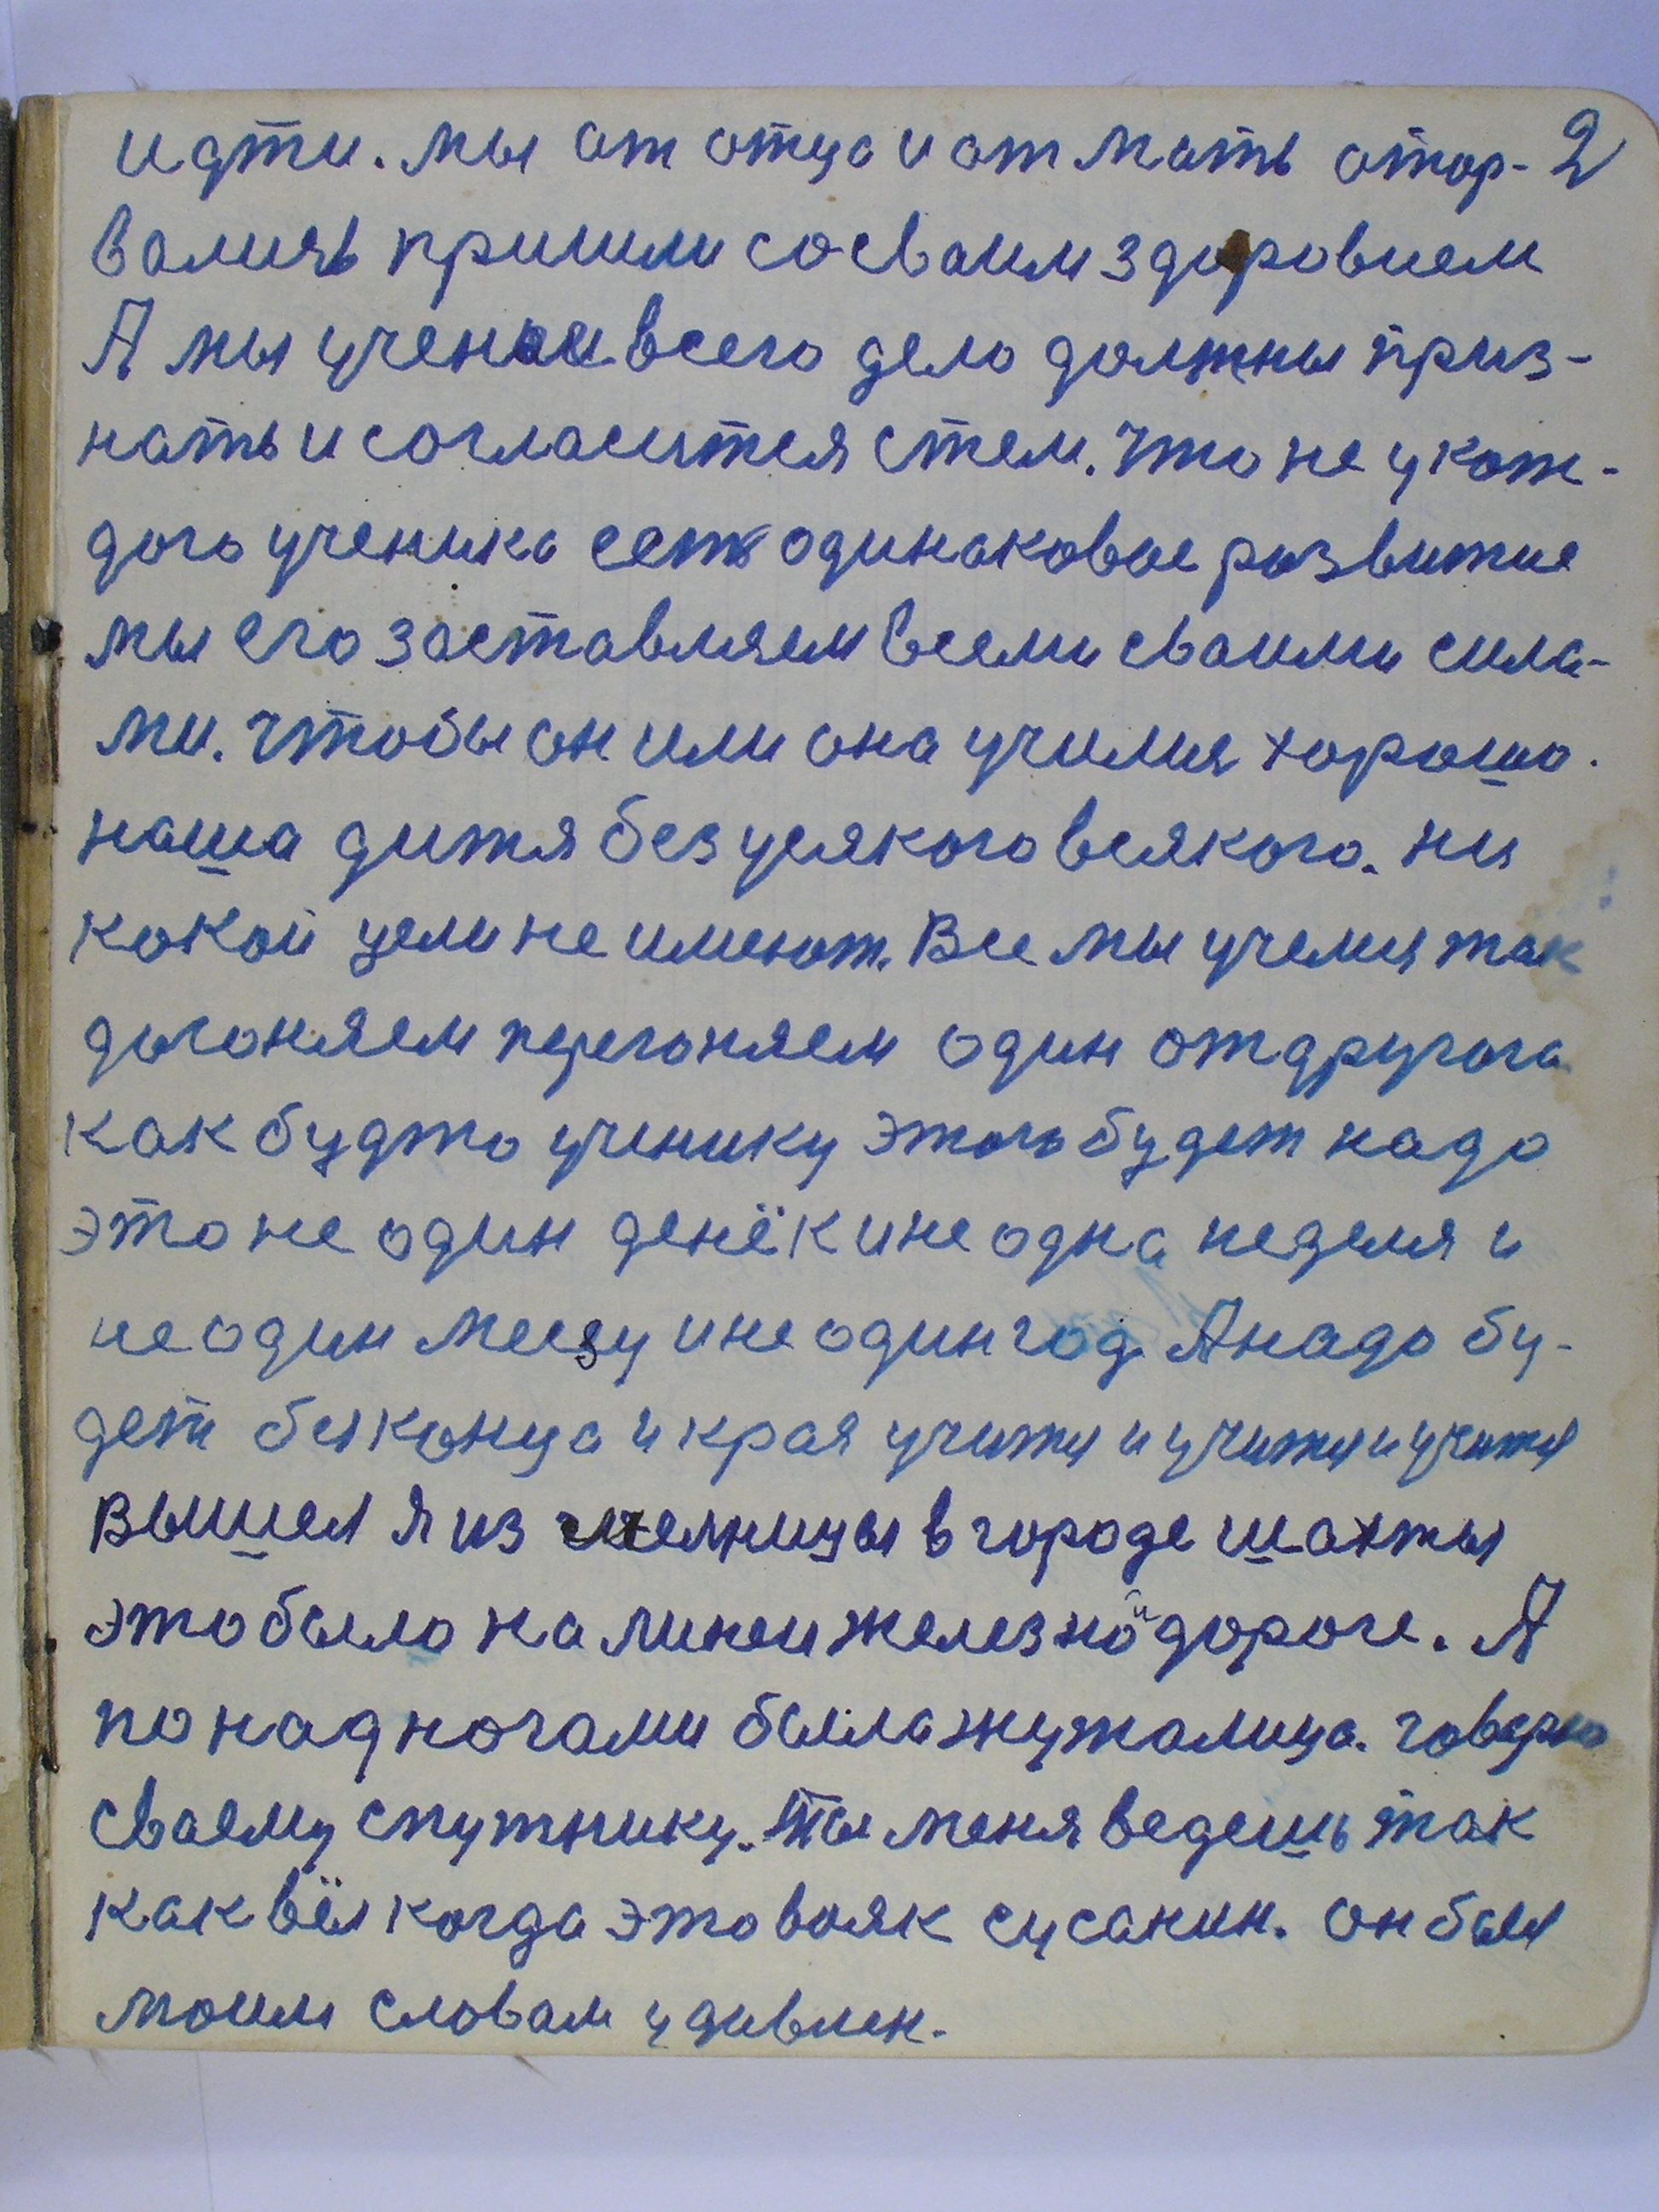 идти. мы от отца и от мать отор- 2
вались пришли со сваим здоровием
А мы учены всего дело должны приз-
нать и согласится с тем. Что не у каж-
дого ученика есть одинаковое развитие
мы его заставляем всеми сваими сила-
ми. Чтобы он или она учился хорошо.
наша дитя без усякого всякого. ни
какой цели не имеют. Все мы учемся так
догоняем перегоняем один от другога
как будто ученику этого будет надо
это не один денёк и не одна неделя и
не один месяц и не один год А надо бу-
дет без конца и края учится и учится и учится
Вышел я из мелницы в городе шахты
это было на линеи железной дороге. А
по над ногами была жужалица. говорю
сваему спутнику. Ты меня ведешь так
как вёл когда это вояк сусанин. он был
моим словам удивлен.